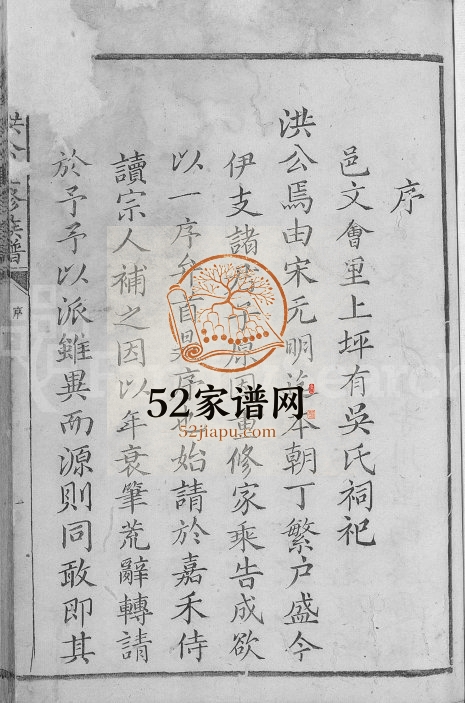 序
邑文會里上坪有吳氏祠祀
洪公焉由宋元明 本朝丁繁户盛今
伊支諸君子原 修家乘告成欲
以一序弁首 序 始請於嘉禾侍
讀宗人補之因以年衰筆荒辭轉請
於予予以派雖異而源則同敢即其
洪 修族譜
序
一
52家谱网
52jiapu.com